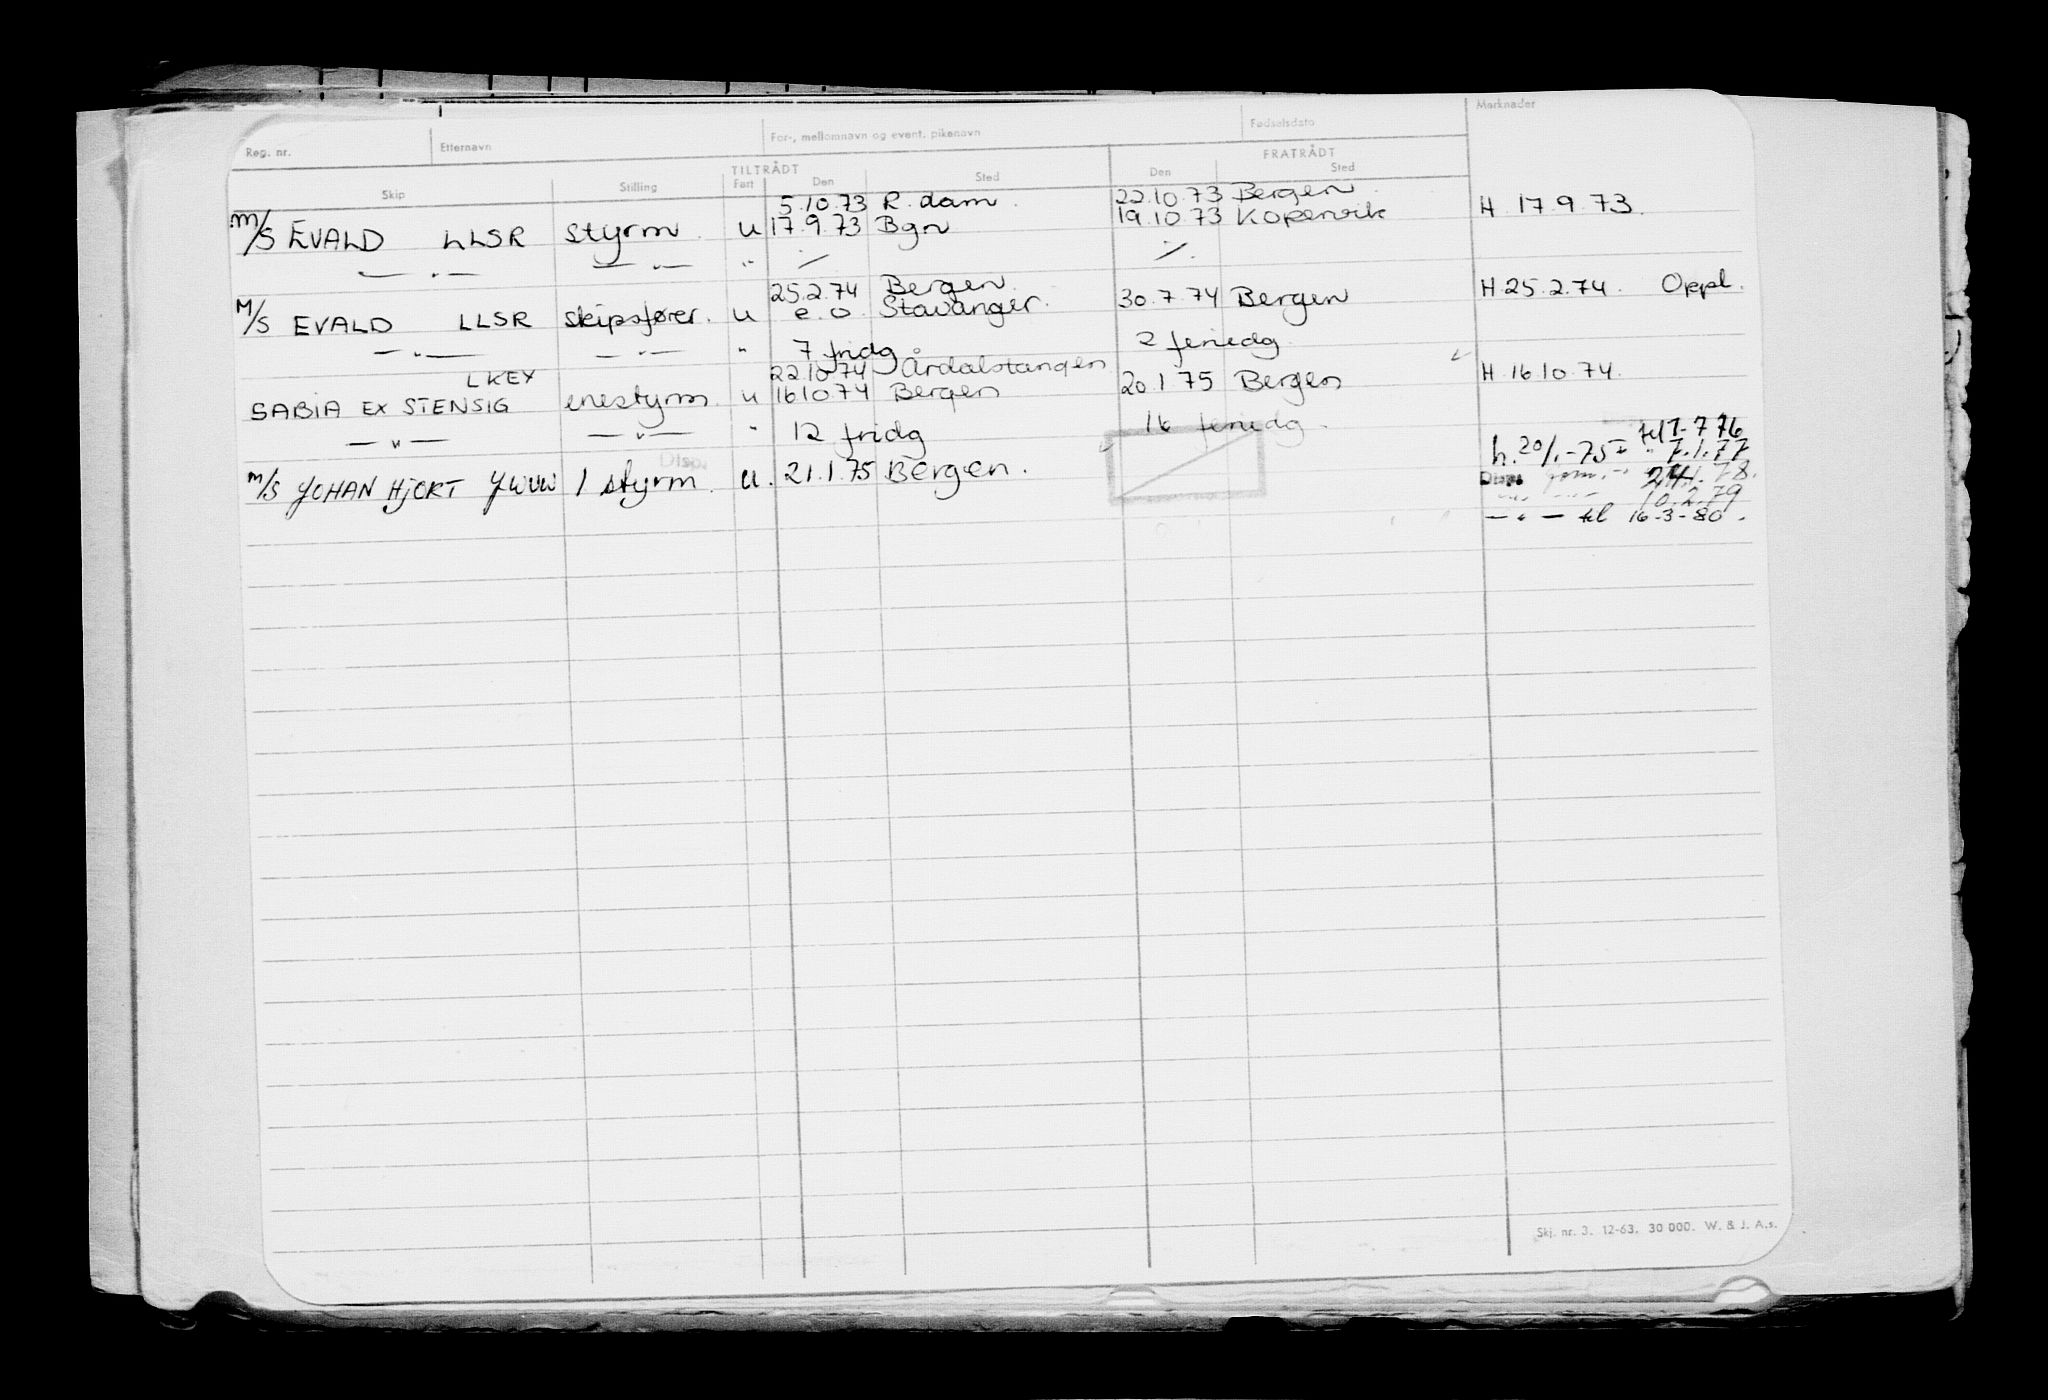 Reg. nr. Etternavn For-, mellomnavn og event. pikenavn Fødselsdato Merknader
TILTRÅDT FRATRÅDT
Skip Stilling Fart Den Sted Den Sted
5.10.73 R.dam. 22.10.73 Bergen.
M/S EVALD LLSR styrm. u 17.9.73 Bgn 19.10.73 Kopervik H 17.9.73.
— " — — " — " ⁒ ⁒
25.2.74 Bergen.
M/S EVALD LLSR skipsfører. u e.o. Stavanger. 30.7.74 Bergen H 25.2.74. Oppl.
— " — — " — " 7 fridg 2 feriedg.
LKEX 22.10.74 Årdalstangen
SABIA EX STENSIG enestyrm. u 16.10.74 Bergen 20.1.75 Bergen H 16.10.74.
— " — — " — " 12 fridg 16 feriedg.
Disp. h. 20/1-75 7.1.77
M/S JOHAN HJORT 1 styrm. u. 21.1.75 Bergen. Disp.
10.2.79
— " — til 16-3-80.
Skj. nr. 3. 12-63. 30 000. W. & J. A.s.